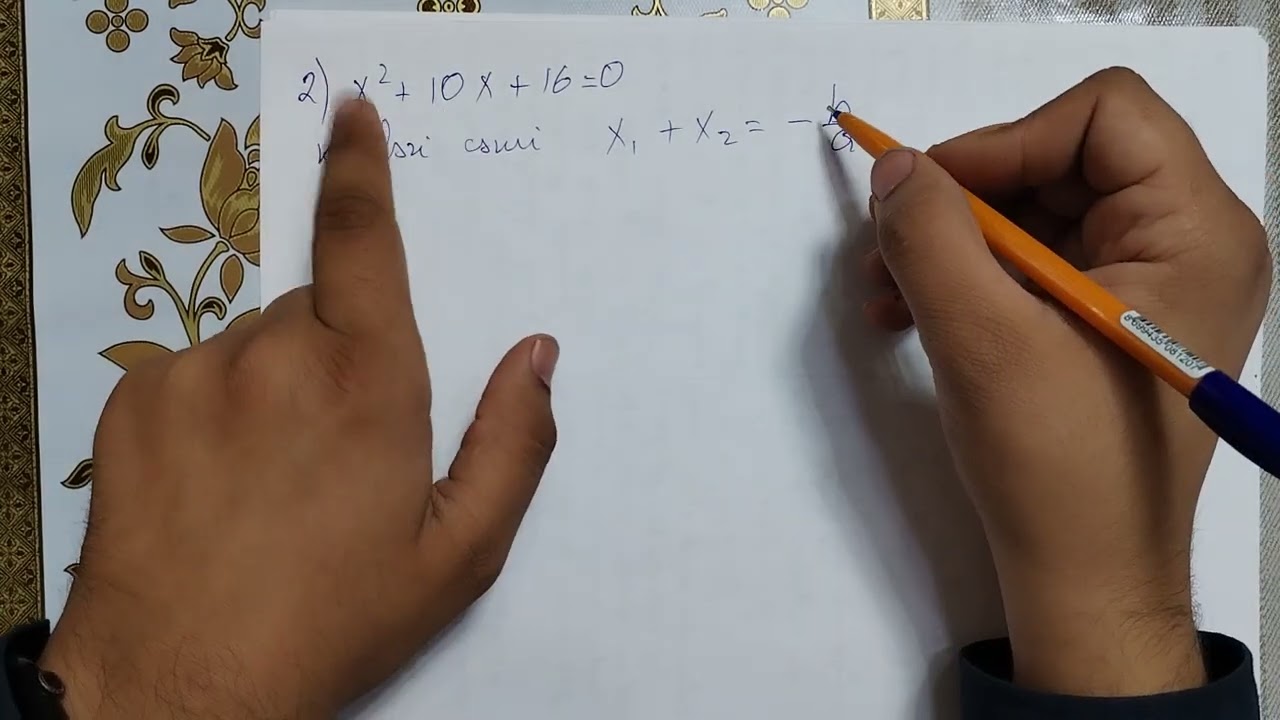 2) x² + 10x + 16 = 0
cəmi x₁ + x₂ = - b/a